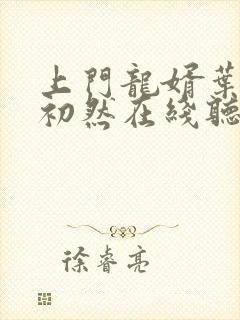 上門龍婿葉
初然在綫聽
徐睿亮